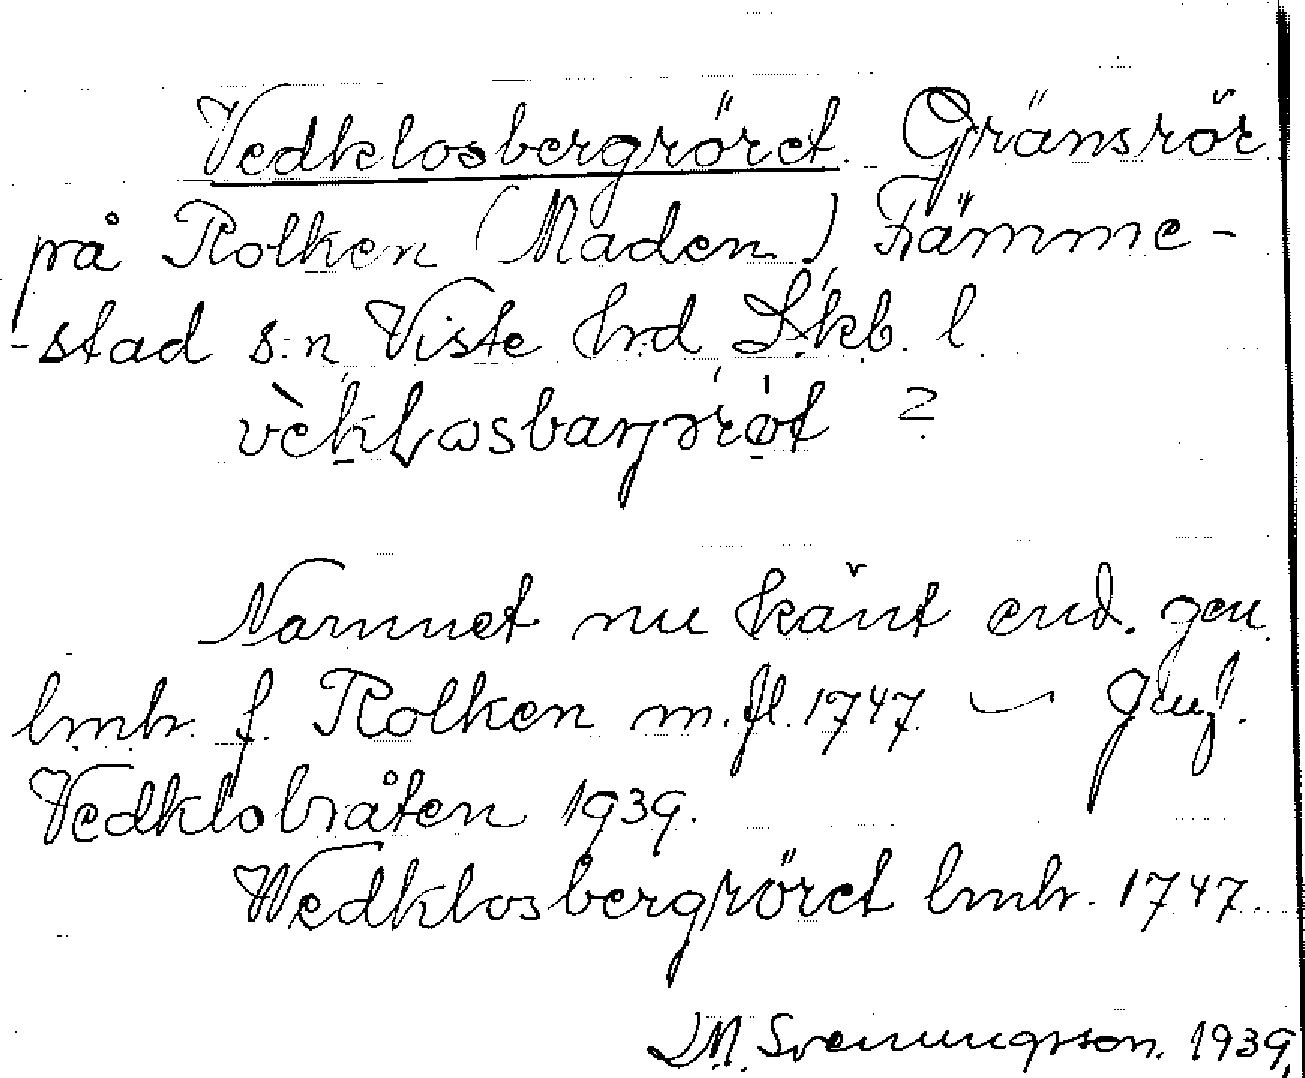 Vedklosbergröret. Gränsrör
på Rolken (Maden) Främme-
-stad s:n Viste hrd Skb. l.
vèklosbarjrøt ?
Namnet nu känt end. gen.
lmhr. f. Rolken m.fl. 1747 – Jmf.
Vedklobråten 1939.
Wedklosbergröret lmhr. 1747.
M. Svenungsson. 1939.